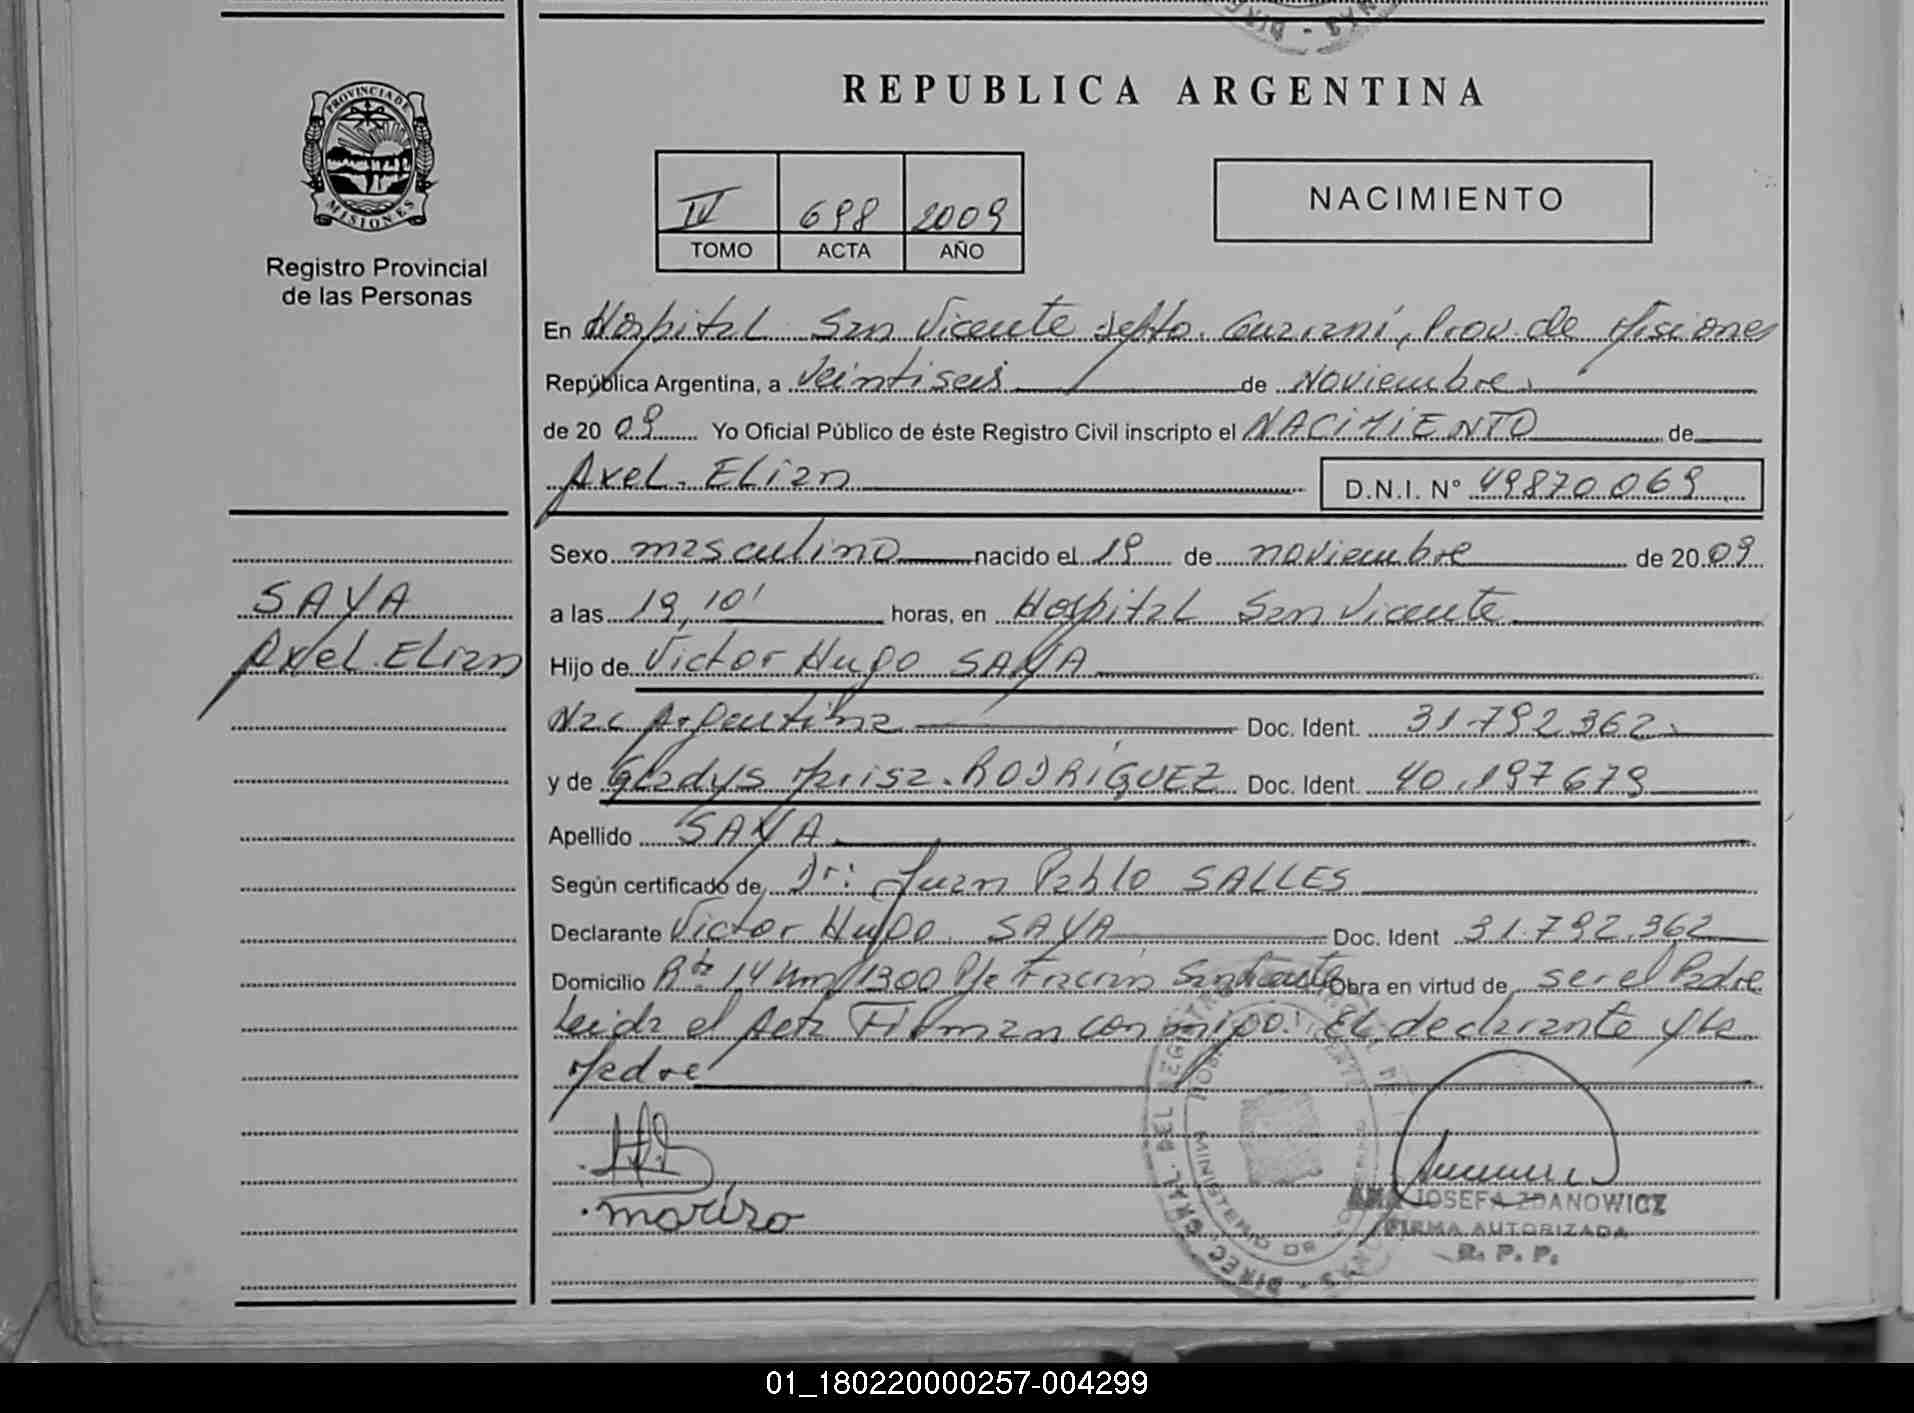 REPUBLICA ARGENTINA
PROVINCIA DE
MISIONES
Registro Provincial
de las Personas
IV 698 2009
TOMO ACTA AÑO
NACIMIENTO
En Hospital San Vicente depto. Guaraní, Prov. de Misiones
República Argentina, a Veintiseis de Noviembre
de 20 09 Yo Oficial Público de éste Registro Civil inscripto el NACIMIENTO de
Axel Elian D.N.I. N° 49870069
Sexo masculino nacido el 19 de noviembre de 20 09
SAYA
Axel Elian
a las 19,10' horas, en Hospital San Vicente
Hijo de Victor Hugo SAYA
Nac Argentina Doc. Ident. 31.792.362
y de Gladys Marisa RODRIGUEZ Doc. Ident. 40.197679
Apellido SAYA
Según certificado de Dr: Juan Pablo SALLES
Declarante Victor Hugo SAYA Doc. Ident 31.792.362
Domicilio Rta 14 Km 1300 Fracrán San Vicente Obra en virtud de ser el Padre
Leida el Acta Firman conmigo: El declarante y la
Madre
mariza
ANA JOSEFA ZDANOWICZ
FIRMA AUTORIZADA
R. P. P.
01_180220000257-004299